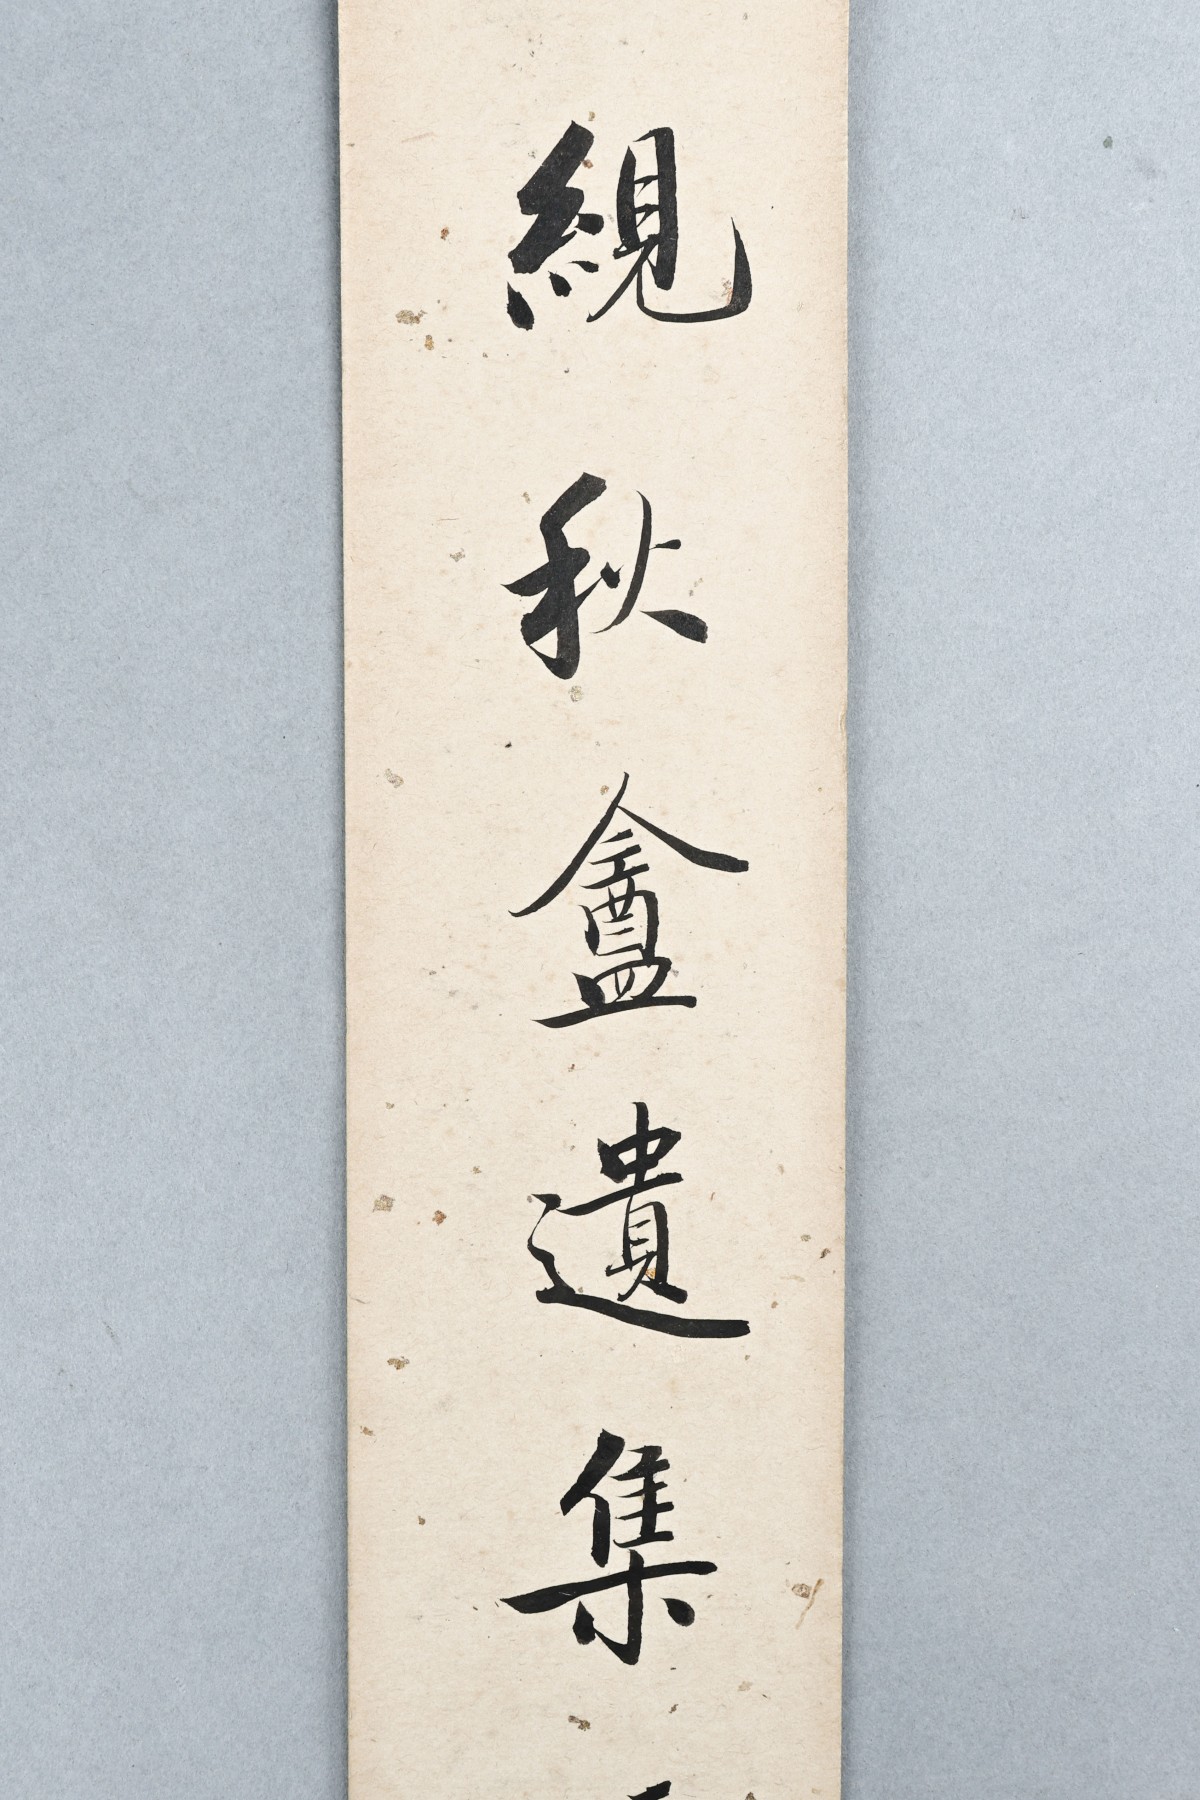 絸秋盦遺集